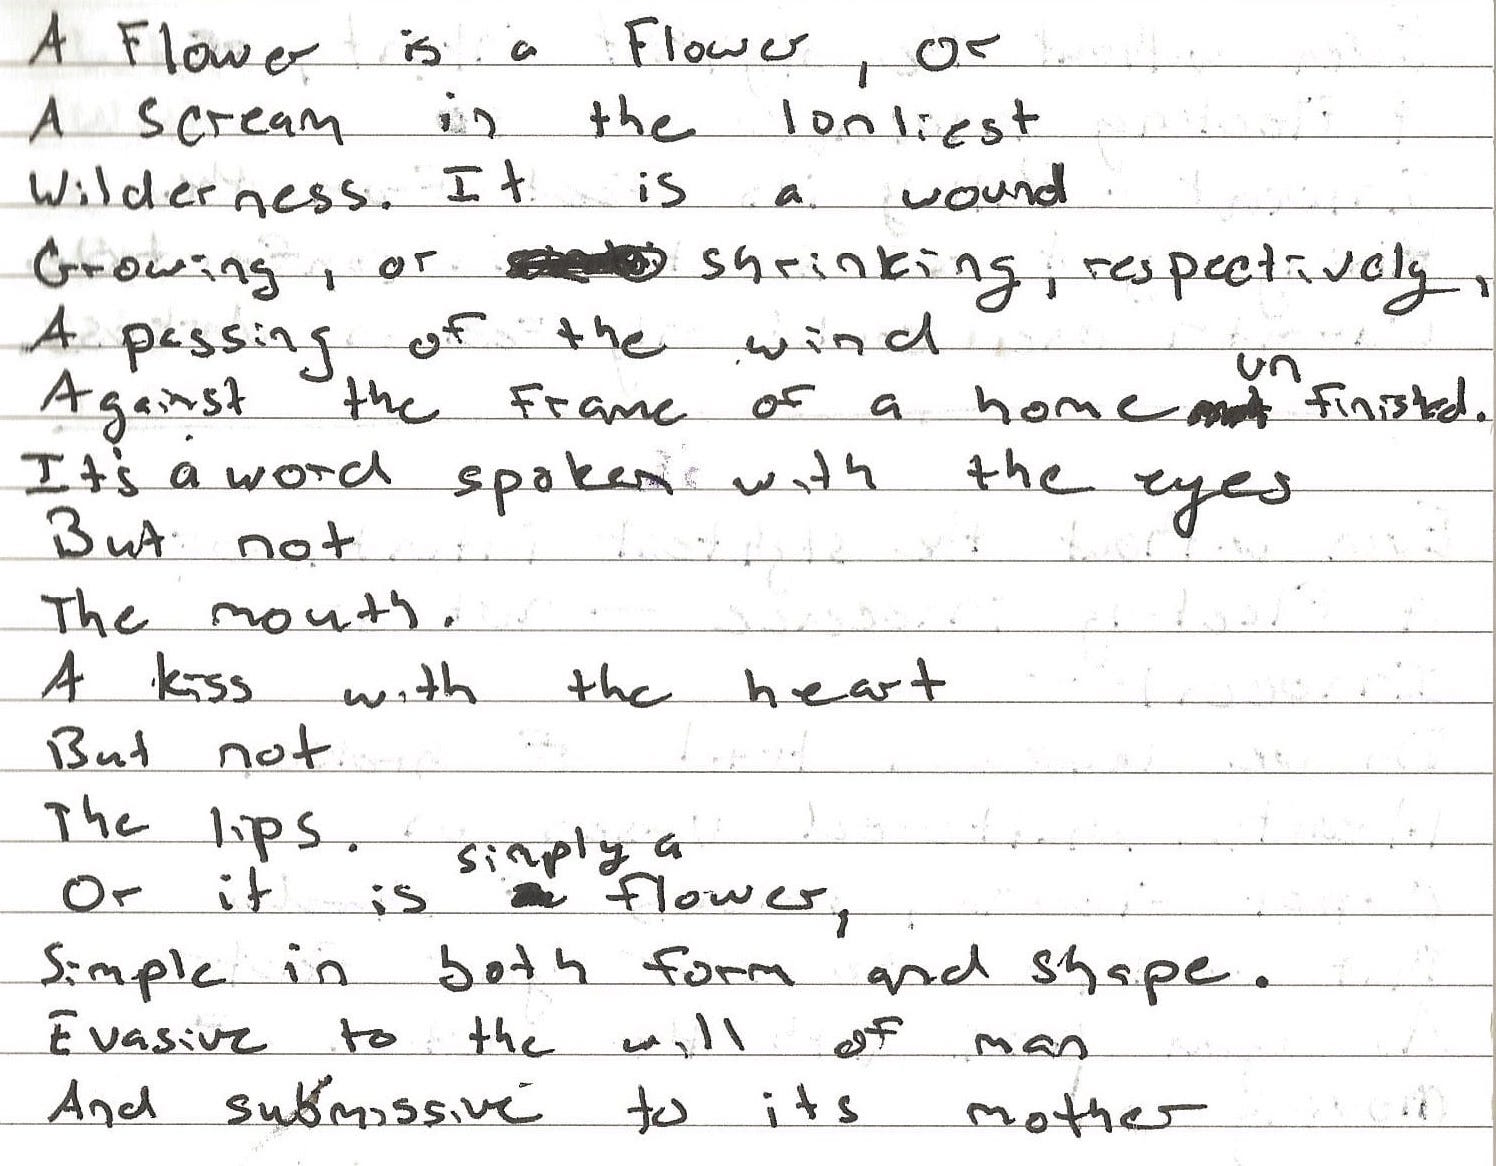 A Flower is a Flower, or
A scream in the lonliest
Wilderness. It is a wound
Growing, or shrinking, respectively,
A passing of the wind
Against the frame of a home unfinished.
It's a word spoken with the eyes
But not
The mouth.
A kiss with the heart
But not
The lips.
Or it is simply a flower,
Simple in both form and shape.
Evasive to the will of man
And submissive to its mother